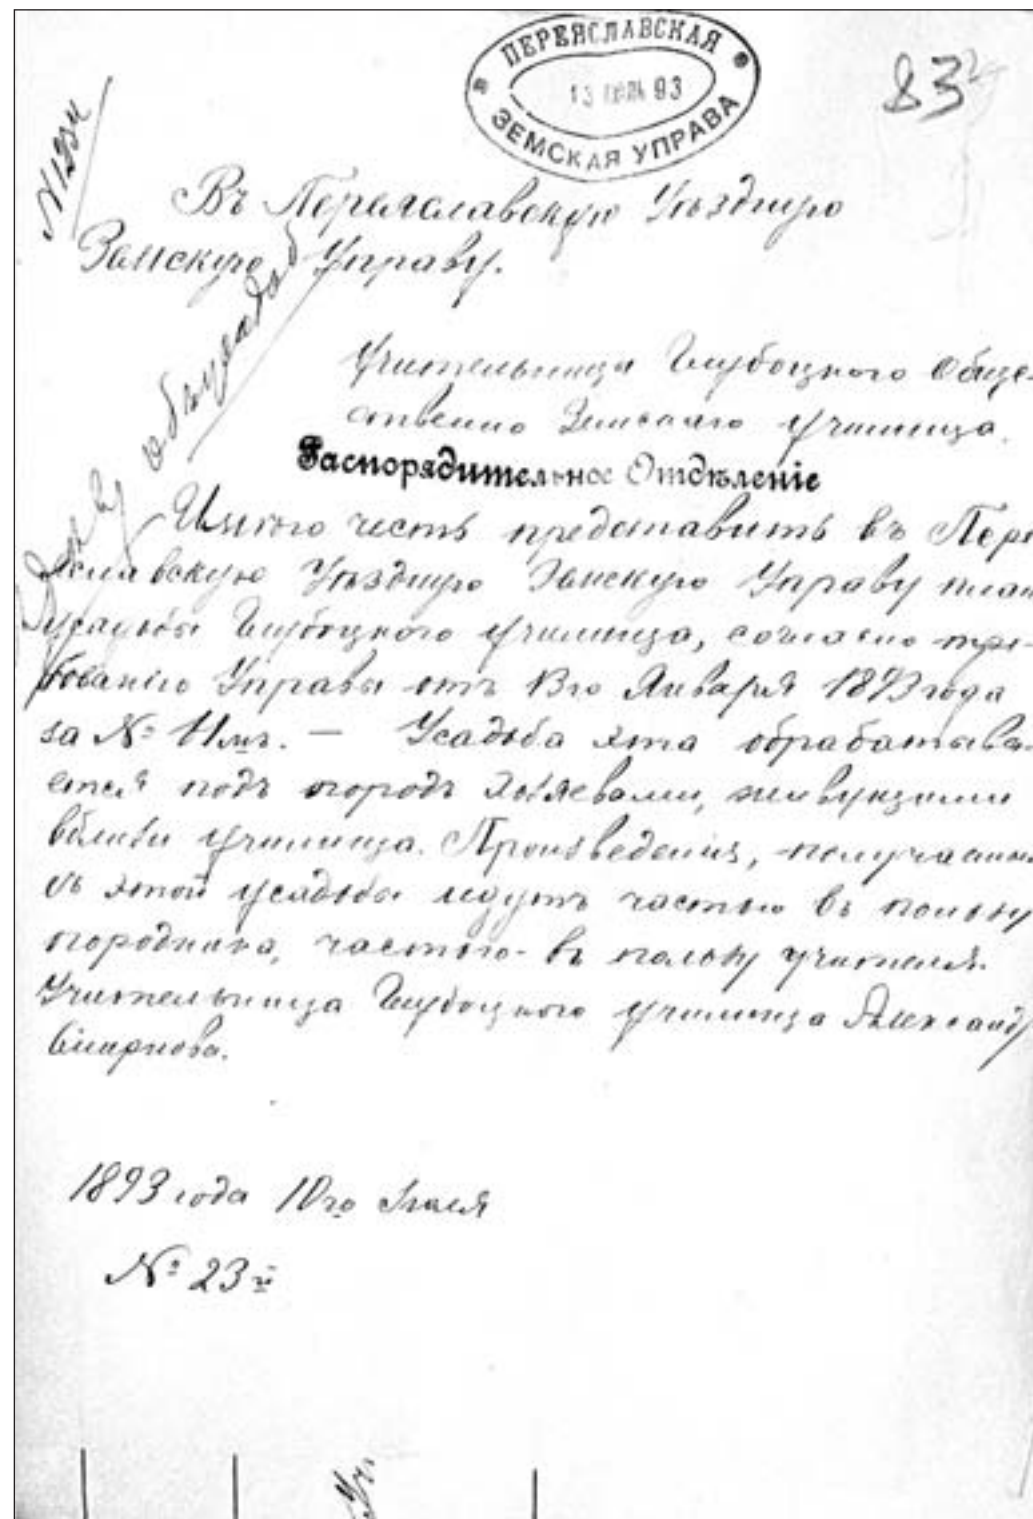 ПЕРЕЯСЛАВСКАЯ
13 93
ЗЕМСКАЯ УПРАВА
83
Въ Переяславскую Уѣздную
Земскую Управу.
Учительница Глубоцкого Обще-
ственно Земскаго училища.
Распорядительное Отдѣленіе
Имѣю честь представить въ Пере
яславскую Уѣздную Земскую Управу план
усадьбы Глубоцкого училища, согласно тре-
бованію Управы отъ 13го Января 1893 года
за №. — Усадьба эта обрабатыва-
ется подъ огородъ хозяевами, живущими
вблизи училища. Произведения, получаемы
съ этой усадьбы идутъ частью въ пользу
огородника, частью- въ пользу учителя.
Учительница Глубоцкого училища Александ
Смирнова.
1893 года 10го Іюля
№ 23й